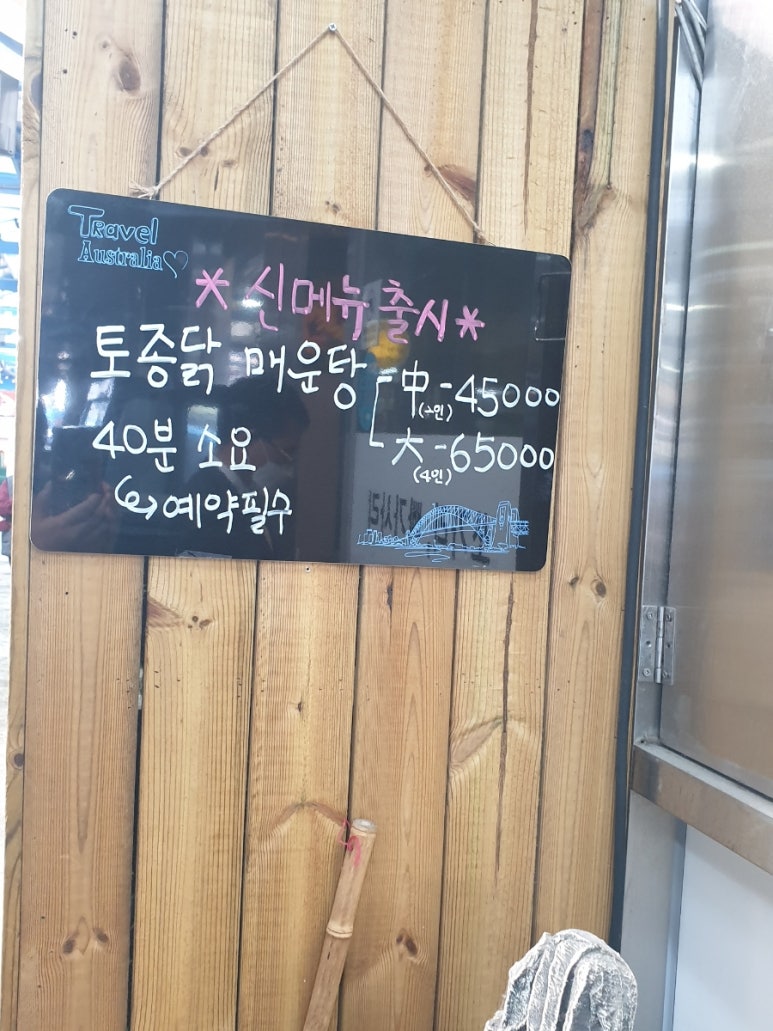 Travel
Australia
*신메뉴 출시*
토종닭 매운탕 中 - 45000
(2인)
大 - 65000
(4인)
40분 소요
예약필수